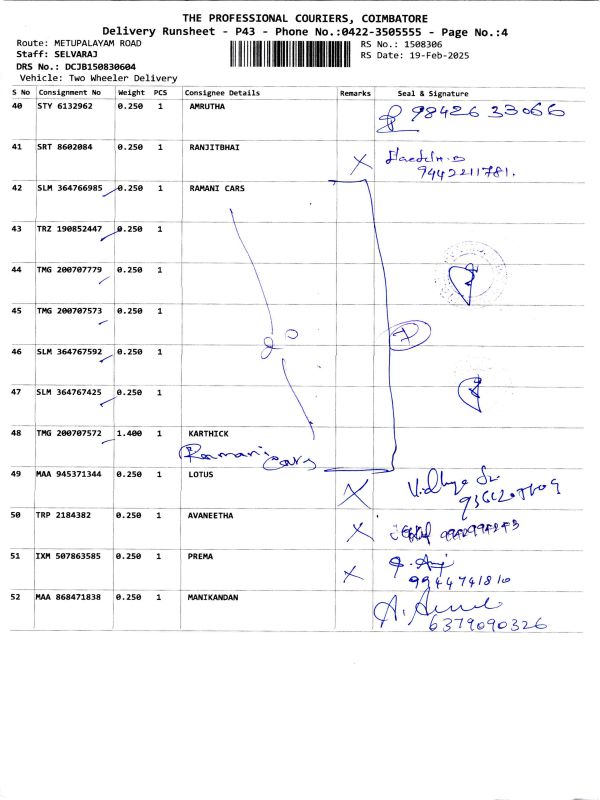 THE PROFESSIONAL COURIERS, COIMBATORE
Delivery Runsheet - P43 - Phone No.:0422-3505555 - Page No.:4
Route: METUPALAYAM ROAD RS No.: 1508306
Staff: SELVARAJ RS Date: 19-Feb-2025
DRS No.: DCJB150830604
Vehicle: Two Wheeler Delivery
S No Consignment No Weight PCS Consignee Details Remarks Seal & Signature
40 STY 6132962 0.250 1 AMRUTHA 98426 33066
41 SRT 8602084 0.250 1 RANJITBHAI X
9442211781.
42 SLM 364766985 0.250 1 RAMANI CARS
43 TRZ 190852447 0.250 1
44 TMG 200707779 0.250 1
45 TMG 200707573 0.250 1
7
46 SLM 364767592 0.250 1 do
47 SLM 364767425 0.250 1
48 TMG 200707572 1.400 1 KARTHICK
Ramani cars
49 MAA 945371344 0.250 1 LOTUS X Vidhya
50 TRP 2184382 0.250 1 AVANEETHA X
51 IXM 507863585 0.250 1 PREMA X
9944741810
52 MAA 868471838 0.250 1 MANIKANDAN
6379090326